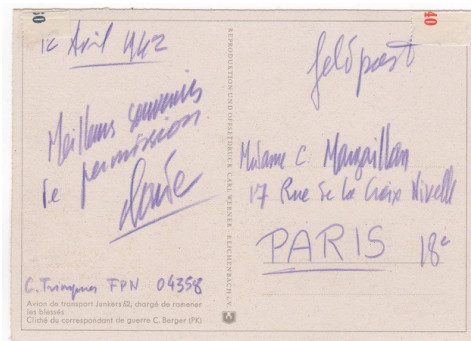 12 Avril 1942
Meilleurs souvenirs
de permission.
G. Trinquier FPN 04358
Avion de transport Junkers 52, chargé de ramener
les blessés
Cliché du correspondant de guerre C. Berger (PK)
REPRODUKTION UND OFFSETDRUCK CARL WERNER REICHENBACH i.V.
40
feldpost
Madame C. Mangaillan
17 Rue de la Croix Nivelle
PARIS 18e